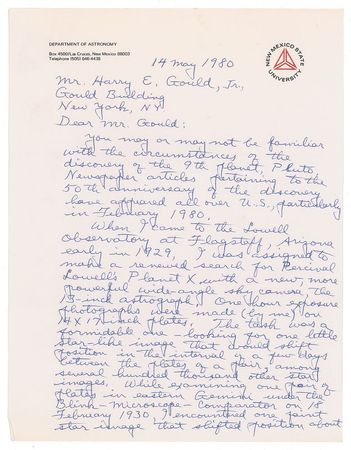 DEPARTMENT OF ASTRONOMY
Box 4500/Las Cruces, New Mexico 88003
Telephone (505) 646-4438
NEW MEXICO STATE UNIVERSITY
14 May 1980
Mr. Harry E. Gould, Jr.,
Gould Building
New York, NY
Dear Mr. Gould:
You may or may not be familiar
with the circumstances of the
discovery of the 9th planet, Pluto.
Newspaper articles pertaining to the
50th anniversary of the discovery
have appeared all over U.S., particularly
in February 1980.
When I came to the Lowell
Observatory at Flagstaff, Arizona
early in 1929, I was assigned to
make a renewed search for Percival
Lowell's Planet X with a new, more
powerful wide-angle sky camera. The
13-inch astrograph. One hour exposure
photographs were made (by me) on
14 X 17-inch plates. The task was a
formidable one - looking for one little
star-like image that would shift
position in the interval of a few days
between the plates of a pair, among
several hundred thousand other star
images. While examining one pair of
plates in eastern Gemini under the
Blink-Microscope-Comparator on 18
February 1930, I encountered one faint
star image that shifted position about